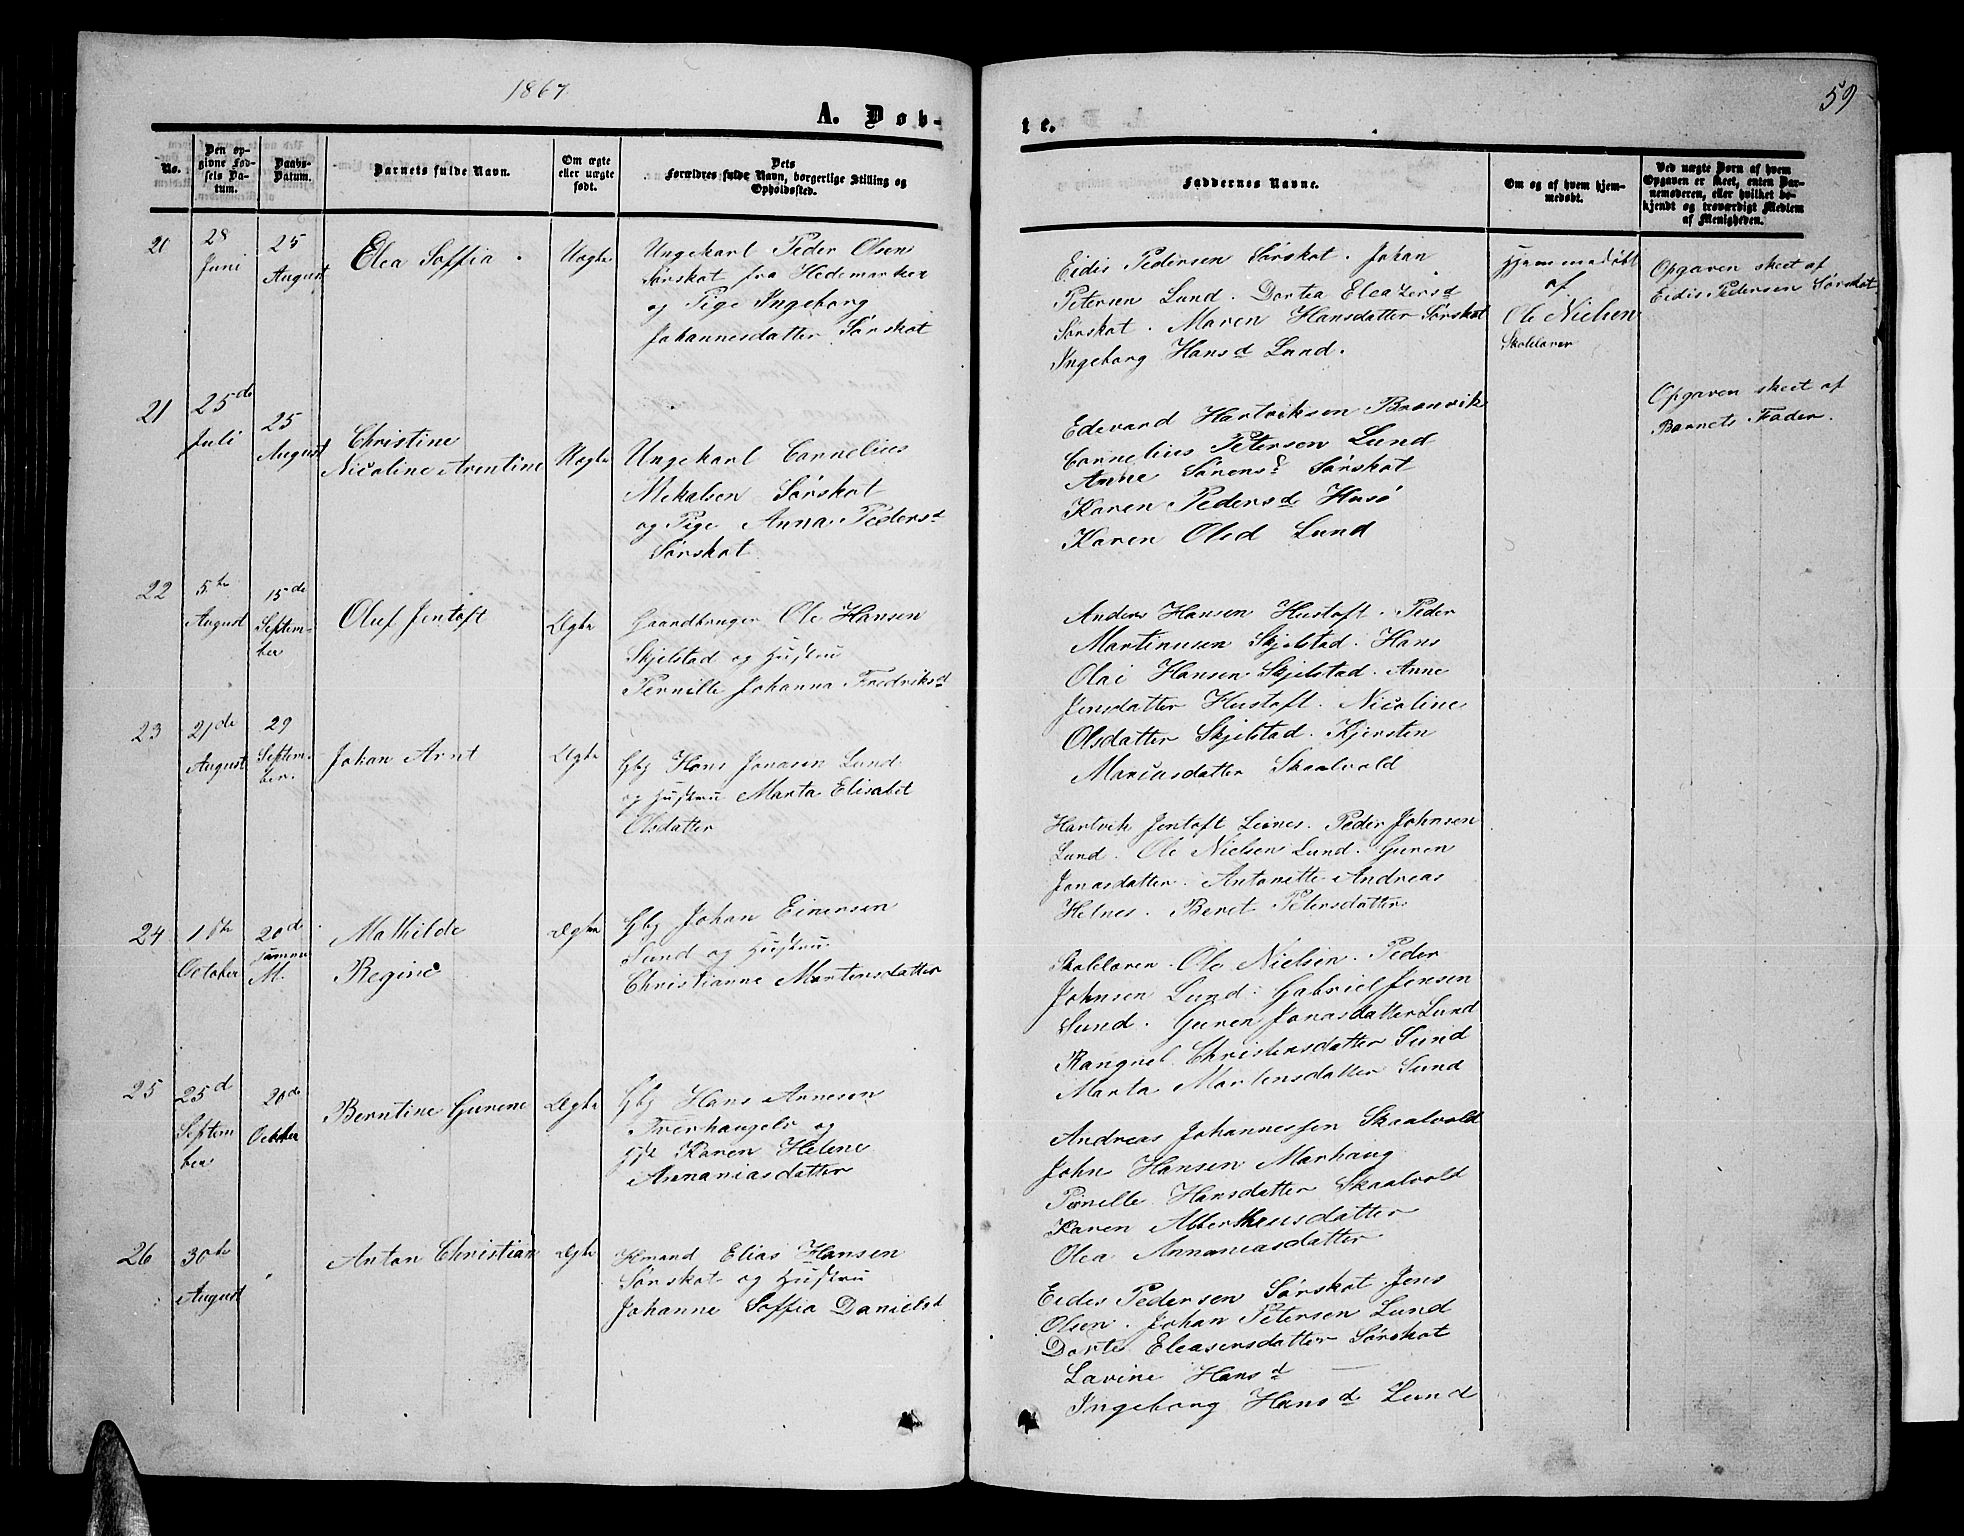 1867
59
A. Døb-
te.
No.
Den op-
givne Fød-
sels Da-
tum.
Daabs-
Datum.
Barnets fulde Navn.
Om ægte
eller uægte
født.
Dets
Forældres fulde Navn, borgerlige Stilling og
Opholdssted.
Faddernes Navne.
Om og af hvem hjem-
medøbt.
Ved uægte Børn af hvem
Opgaven er skeet, enten Bar-
nemoderen, eller hvilket be-
kjendt og troværdigt Medlem
af Menigheden.
20
28
Juni
25
August
Elea Soffia
Uægte
Ungekarl Peder Olsen
Sørskot fra Hedemarken
og Pige Ingeborg
Johannesdatter Sørskot
Eidis Pedersen Sørskot. Johan
Petersen Lund. Dortea Eleazersd
Sørskot. Maren Hansdatter Sørskot
Ingeborg Hansd Lund.
Hjemmedøbt
af
Ole Nielsen
Skolelærer
Opgaven skeet af
Eidis Pedersen Sørskot
21
25de
Juli
25
August
Christine
Nicoline Arentine
Uægte
Ungekarl Cornelius
Mikalsen Sørskot
og Pige Anna Pedersd
Sørskot
Edevard Hartviksen Brænvik
Cornelius Petersen Lund
Anne Sørensd Sørskot
Karen Pedersd Husø
Karen Olsd Lund
Opgaven skeet af
Barnets Fader.
22
5te
August
15de
Septem-
ber
Oluf Jentoft
Ægte
Gaardbruger Ole Hansen
Skjelstad og Hustru
Pernille Johanna Fredriksd
Anders Hansen Hustoft. Peder
Martinusen Skjelstad. Hans
Olai Hansen Skjelstad. Anne
Jensdatter Hustoft. Nicoline
Olsdatter Skjelstad. Kjersten
Mariasdatter Skaalvold
23
21de
August
29
Septem-
ber.
Johan Arnt
Ægte
Gbg Hans Jonasen Lund
og Hustru Marta Elisabet
Olsdatter
Hartvik Jentoft Leines. Peder Johnsen
Lund. Ole Nielsen Lund. Guren
Jonasdatter. Antonette Andreas
Helnes. Beret Petersdatter
24
1ste
October
20d
samme
M.
Mathilde
Regine
Ægte
Gbg Johan Einersen
Sund og Hustru
Christianne Mortensdatter
Skolelæren. Ole Nielsen. Peder
Johnsen Lund. Gabriel Jensen
Sund. Guren Jonasdatter Lund
Rangnel Christensdatter Sund
Marta Mortensdatter Sund
25
25d
Septem
ber
20de
October
Berntine Gurene
Ægte
Gbg Hans Arnesen
Trerhaugele og
H. Karen Helene
Annaniasdatter
Andreas Johannessen Skaalvold
John Hansen Marhaug
Pernille Hansdatter Skaalvold
Karen Alberthensdatter
Olea Annaniasdatter
26
30te
August
Anton Christian
Ægte
Hmand Elias Hansen
Sørskot og Hustru
Johanne Soffia Danielsd
Eides Pedersen Sørskot Jens
Olsen. Johan Petersen Lund
Dorte Eleasersdatter Sørskot
Lavine Hansd —
Ingeborg Hansd Lund